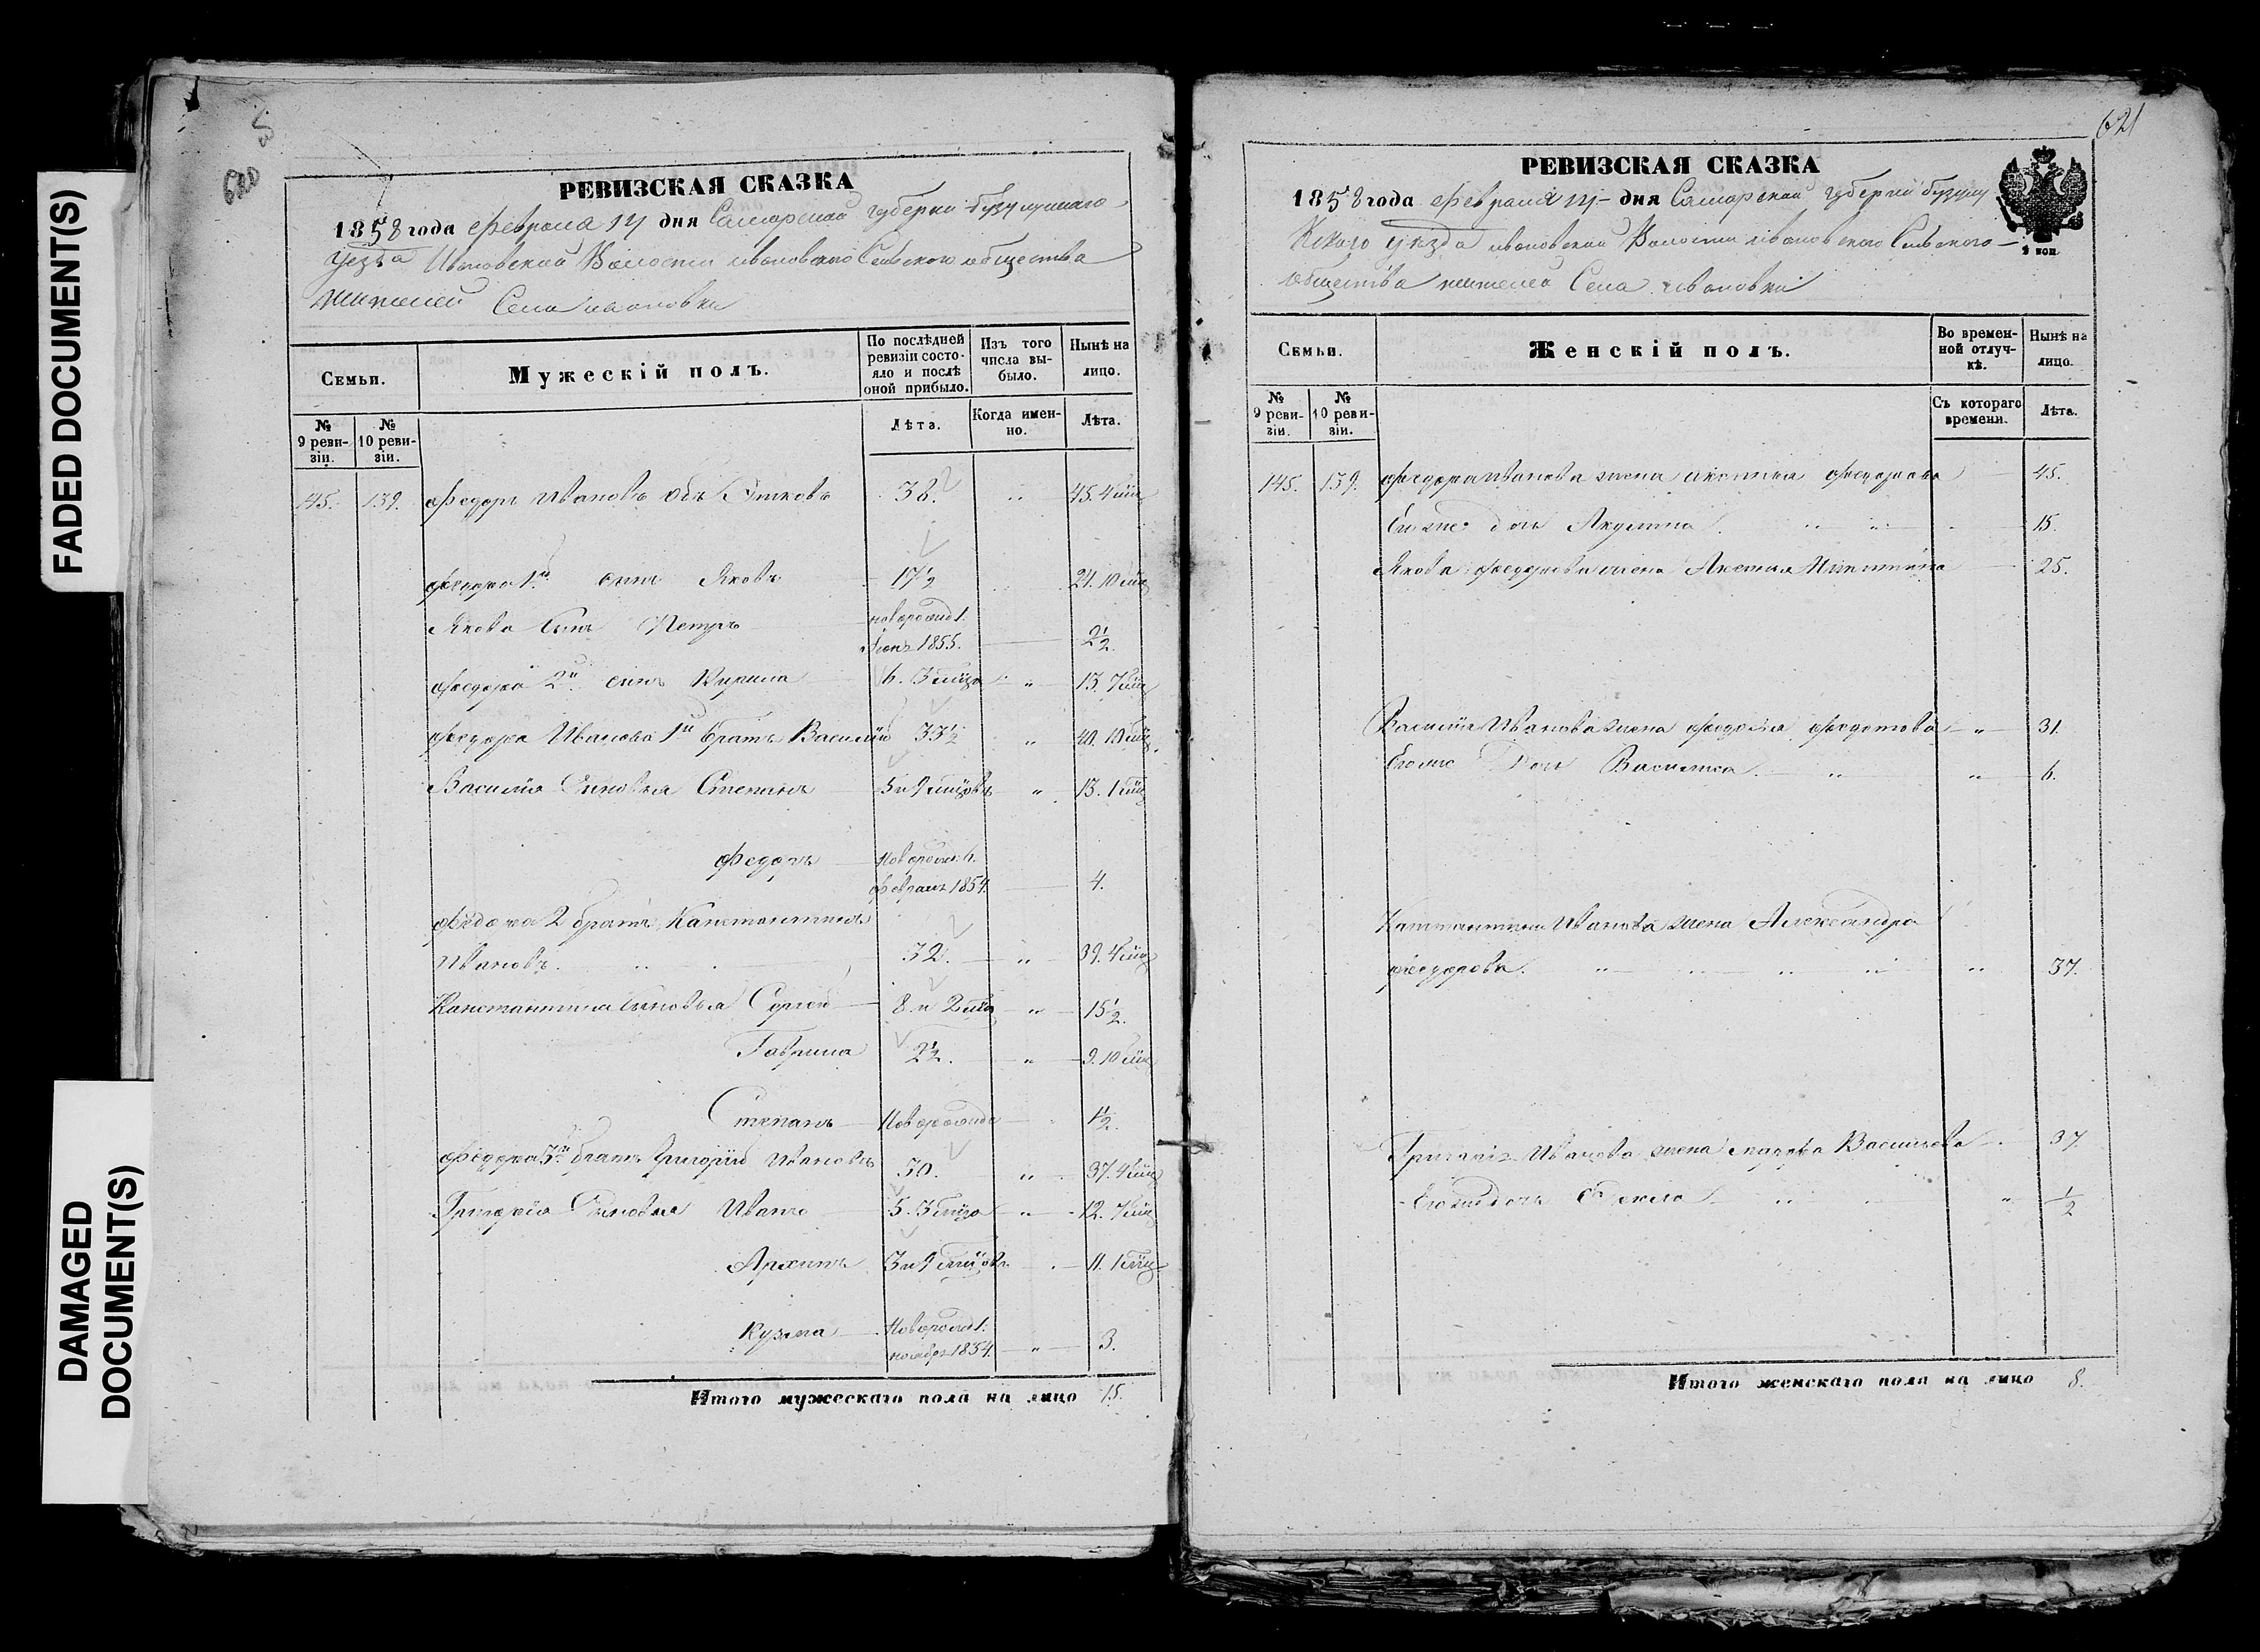 FADED DOCUMENT(S)
DAMAGED
DOCUMENT(S)
620
РЕВИЗСКАЯ СКАЗКА
1858 года февраля дня Самарской губернии бузулукскаго
уезда Ивановской Волости ивановскаго Сельскаго общества
жителей Села ивановки
Семьи.
Мужескій полъ.
По послѣдней ревизіи состояло и послѣ оной прибыло.
Изъ того числа выбыло.
Нынѣ на лицо.
№ 9 ревизіи.
№ 10 ревизіи.
Лѣта.
Когда именно.
Лѣта.
145. 139. Федоръ Ивановъ 38. " 45. 4
Федора 1й сынъ Яковъ 17½ 24. 10
Якова сынъ Петръ новорожд 1.
1855. 2½.
Федора 2й сынъ Кирила 6. 3 " 13. 7
Федора Иванова 1й братъ Василій 33½ " 40. 10
Василія Сыновья Степанъ 5 и 9 " 13. 1
Федоръ Новорожд: 6.
февраля 1854. 4.
Федора 2 братъ Канстантинъ
Ивановъ. 32. " 39. 4
Канстантина сыновья Сергей 8 и 2 " 15½.
Гаврила 2½. " 9. 10
Степанъ Новорожд 1½.
Федора 3й братъ Григорій Ивановъ 30. " 37. 4
Григорія Сыновья Иванъ 5. 3 " 12. 7
Архипъ 3 и 9 11. 1
Кузма Новорожд 1.
ноябр 1854. " 3.
Итого мужескаго пола на лицо 15.
621
РЕВИЗСКАЯ СКАЗКА
1858 года февраля дня Самарской губернии бузулу
кскаго уезда ивановской Волости ивановскаго Сельскаго
общества жителей Села ивановки
Семьи.
Женскій полъ.
Во временной отлучкѣ.
Нынѣ на лицо.
№ 9 ревизіи.
№ 10 ревизіи.
Съ котораго времени.
Лѣта.
145. 139. Федора Иванова жена Федорова 45.
доч Акулина. 15.
Якова Федорова жена 25.
Василія Иванова жена Федосья Федотова " 31.
Его же Доч Василиса. " " 6.
Канстантина Иванова жена Александра
Федорова. " " 37.
Григорія Иванова жена Васильева 37.
Его же доч Фекла " ½
Итого женскаго пола на лицо 8.